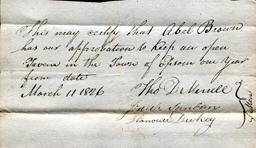 This may certify that Abel Brown
has our approbation to keep an open
Tavern in the Town of Epsom one Year
from date
March 11 1826
Tho D Merrill
Hanover Dickey